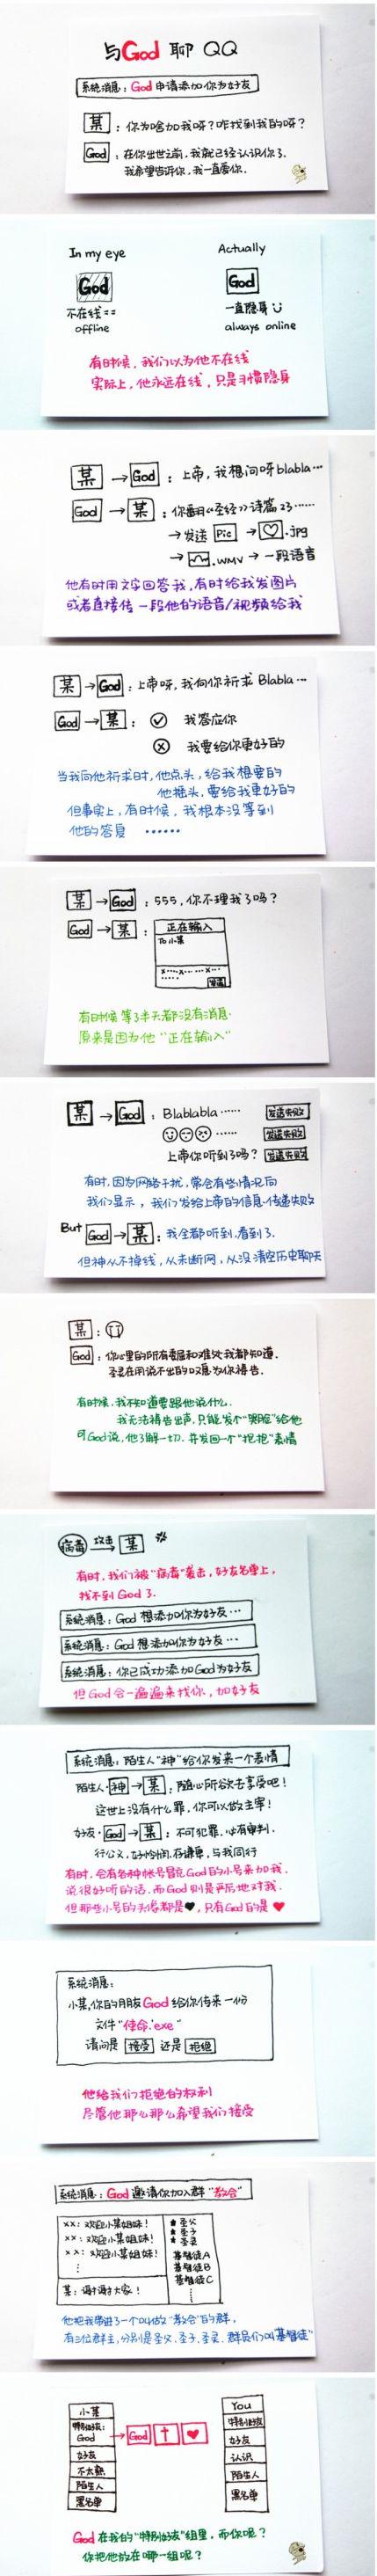 与God 聊 QQ
系统消息：God 申请添加你为好友
某：你为啥加我呀？咋找到我的呀？
God：在你出世之前，我就已经认识你了。
我希望告诉你，我一直爱你。
In my eye
Actually
God
God
不在线==
一直隐身
offline
always online
有时候，我们以为他不在线
实际上，他永远在线，只是习惯隐身
某→God：上帝，我想问呀blabla…
God→某：你翻《圣经》诗篇23……
→发送 Pic →♡.jpg
→.wmv→一段语音
他有时用文字回答我，有时给我发图片
或者直接传一段他的语音/视频给我
某→God：上帝呀，我向你祈求 Blabla…
God→某：✓ 我答应你
× 我要给你更好的
当我向他祈求时，他点头，给我想要的
他摇头，要给我更好的
但事实上，有时候，我根本没等到
他的答复 ……
某→God：555，你不理我了吗？
God→某：正在输入
To 小某
发送
有时候等了半天都没有消息.
原来是因为他“正在输入”
某→God：Blablabla…… 发送失败
…… 发送失败
上帝你听到了吗？ 发送失败
有时，因为网络干扰，常会有些情况向
我们显示，我们发给上帝的信息传递失败
But God→某：我全都听到，看到了.
但神从不掉线，从未断网，从没清空历史聊天
某：
God：你心里的所有委屈和难处我都知道.
圣灵在用说不出的叹息为你祷告.
有时候，我不知道要跟他说什么.
我无法祷告出声，只能发个“哭脸”给他
可God说，他了解一切，并发回一个“抱抱”表情
病毒 攻击→某
有时，我们被“病毒”袭击，好友名单上，
找不到 God 了.
系统消息：God 想添加你为好友…
系统消息：God 想添加你为好友…
系统消息：你已成功添加God为好友
但God会一遍遍来找你，加好友
系统消息：陌生人“神”给你发来一个表情
陌生人·神→某：随心所欲去享受吧！
这世上没有什么罪，你可以做主宰！
好友·God→某：不可犯罪，必有审判.
行公义，好怜悯，存谦卑，与我同行
有时，会有各种帐号冒充God的小号来加我.
说很好听的话，而God则是严厉地对我.
但那些小号的头像都是♥，只有God的是♥
系统消息：
小某，你的朋友God给你传来一份
文件“使命.exe”
请问是 接受 还是 拒绝
他给我们拒绝的权利
尽管他那么那么希望我们接受
系统消息：God邀请你加入群“教会”
xx：欢迎小某姐妹！
xx：欢迎小某姐妹！
xx：欢迎小某姐妹！
⋮
某：谢谢大家！
★圣父
★圣子
★圣灵
基督徒A
基督徒B
基督徒C
⋮
他把我带进了一个叫做“教会”的群，
有三位群主，分别是圣父、圣子、圣灵，群员们叫“基督徒”
小某
特别好友：
God
→God † ♥
好友
不太熟
陌生人
黑名单
You
特别好友
好友
认识
陌生人
黑名单
God 在我的“特别好友”组里，而你呢？
你把他放在哪一组呢？